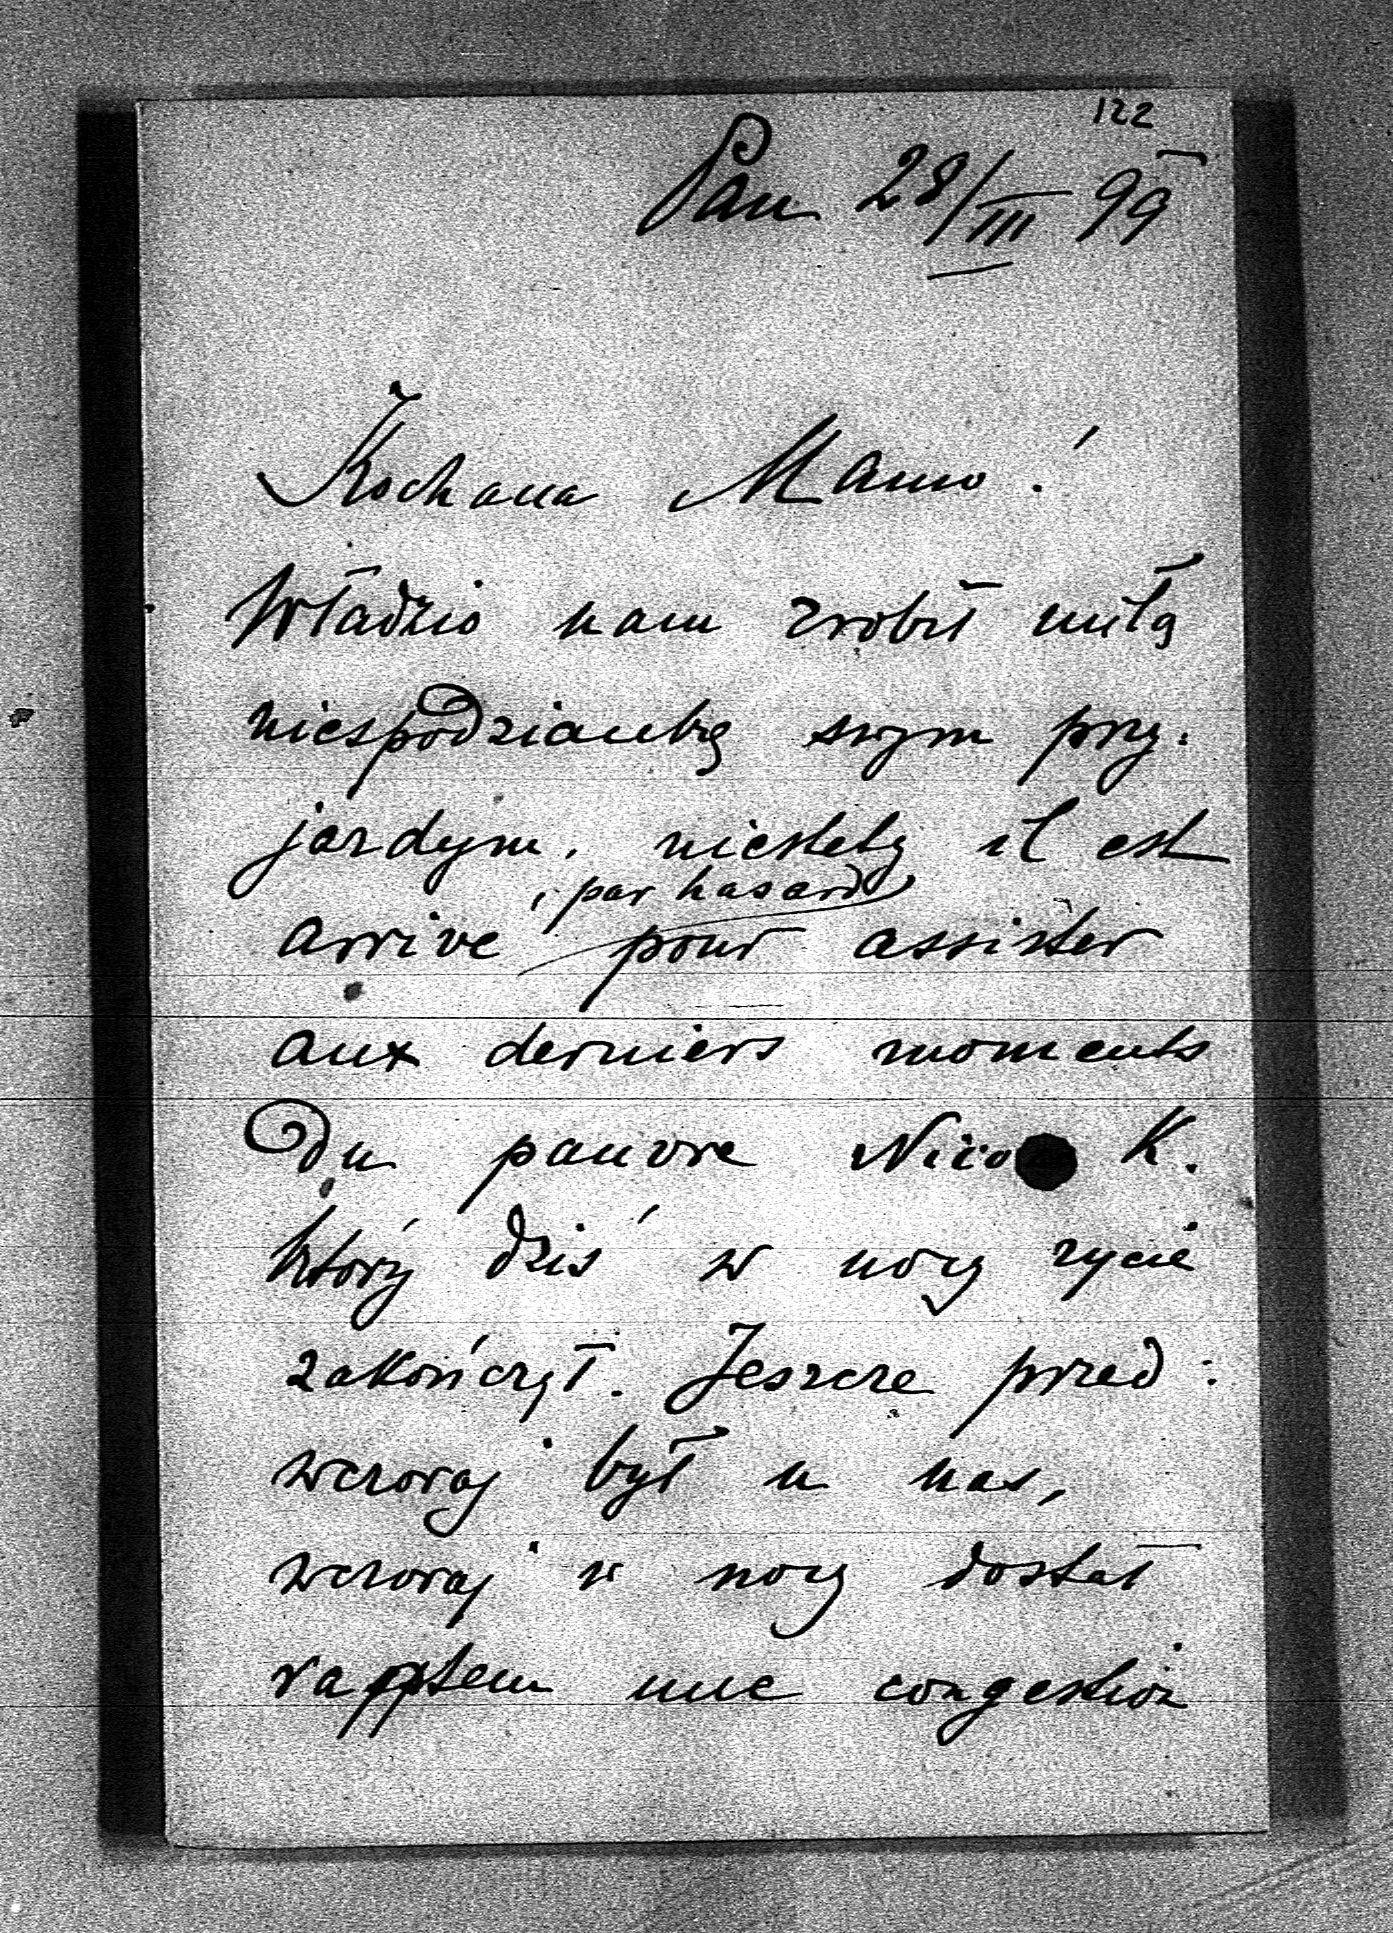 122
Pau 28/III 99
Kochana Mamo!
Władzio nam zrobił miłą
niespodziankę swym przy:
jazdym, niestety il est
arrivé par hasard
pour assister
aux derniers moments
du pauvre Nico K.
który dziś w nocy życie
zakończył. Jeszcze przed:
wczoraj był u nas,
wczoraj w nocy dostał
rapptem une congestion